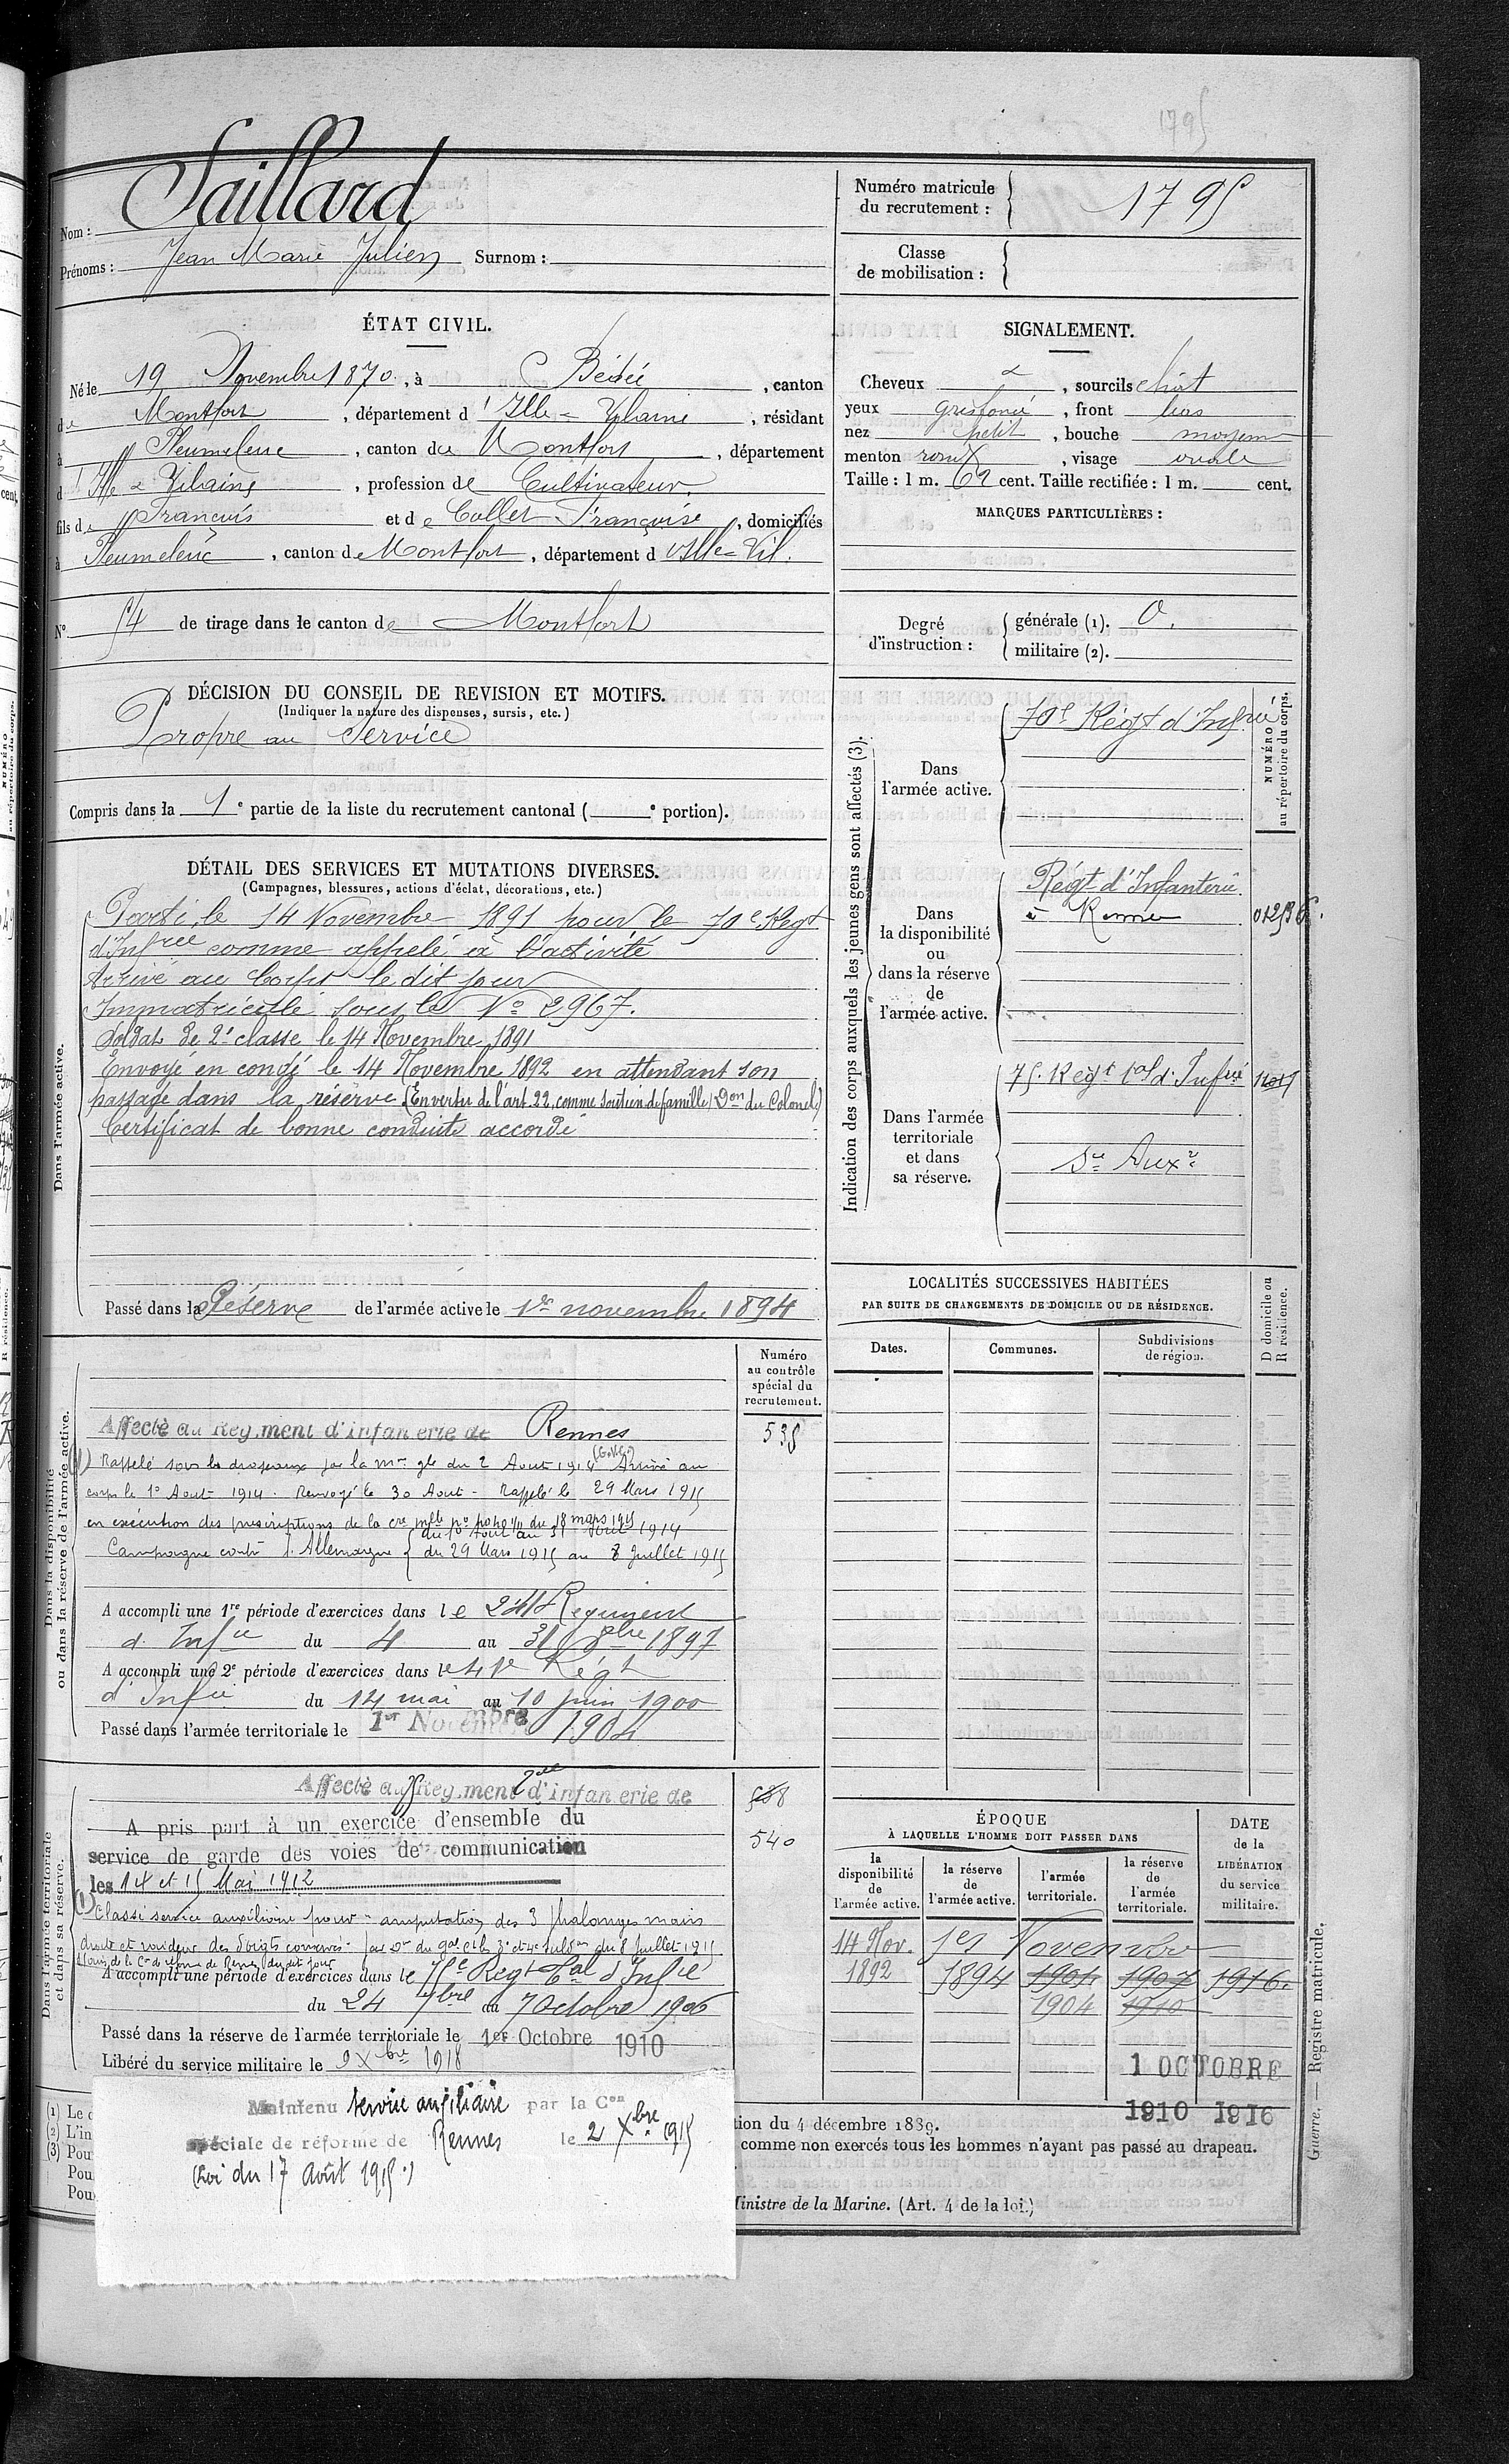 1795
Saillard
Nom :
Prénoms : Jean Marie Julien Surnom :
Numéro matricule du recrutement : 1795
Classe de mobilisation :
ÉTAT CIVIL.
Né le 19 Novembre 1870, à Bédée, canton
de Montfort, département d'Ille & Vilaine, résidant
à Pleumeleuc, canton de Montfort, département
d'Ille & Vilaine, profession de Cultivateur
fils de François et de Collet Françoise, domiciliés
à Pleumeleuc, canton de Montfort, département d'Ille & Vil.
N° 54 de tirage dans le canton de Montfort
SIGNALEMENT.
Cheveux & , sourcils chat
yeux gris foncé, front bas
nez petit, bouche moyenne
menton rond, visage ovale
Taille : 1 m. 62 cent. Taille rectifiée : 1 m. cent.
MARQUES PARTICULIÈRES :
Degré d'instruction : générale (1). 0.
militaire (2).
DÉCISION DU CONSEIL DE REVISION ET MOTIFS.
(Indiquer la nature des dispenses, sursis, etc.)
Propre au Service
Compris dans la 1e partie de la liste du recrutement cantonal ( e portion).
DÉTAIL DES SERVICES ET MUTATIONS DIVERSES.
(Campagnes, blessures, actions d'éclat, décorations, etc.)
Dans l'armée active.
Parti le 14 Novembre 1891 pour le 70e Régt
d'Infrie comme appelé à l'activité
Arrivé au Corps le dit jour
Immatriculé sous le No 2967.
Soldat de 2e classe le 14 Novembre 1891
Envoyé en congé le 14 Novembre 1892 en attendant son
passage dans la réserve (En vertu de l'art. 22, comme soutien de famille) Don du Colonel)
Certificat de bonne conduite accordé
Passé dans la Réserve de l'armée active le 1er novembre 1894
Indication des corps auxquels les jeunes gens sont affectés (3).
NUMÉRO au répertoire du corps.
Dans l'armée active.
70e Régt d'Infrie
Dans la disponibilité ou dans la réserve de l'armée active.
Régt d'Infanterie
à Rennes
Dans l'armée territoriale et dans sa réserve.
75e Régt tal d'Infrie
Sce Auxre
LOCALITÉS SUCCESSIVES HABITÉES
PAR SUITE DE CHANGEMENTS DE DOMICILE OU DE RÉSIDENCE.
Dates. Communes. Subdivisions de région. D domicile ou R résidence.
Dans la disponibilité ou dans la réserve de l'armée active.
Numéro au contrôle spécial du recrutement.
Affecté au Régiment d'infanterie de Rennes 538
(1) Rappelé sous les drapeaux par la mon gle du 2 Aout 1914 (G.V.C.) Arrivé au
corps le 1er Aout 1914. Renvoyé le 30 Aout - Rappelé le 29 Mars 1915
en exécution des prescriptions de la cre mlle no du 18 mars 1915
Campagne contre l'Allemagne { du 1er Aout au 31 Aout 1914
du 29 Mars 1915 au 8 Juillet 1915
A accompli une 1re période d'exercices dans le 241e Régiment
d'Infie du 4 au 31 8bre 1897
A accompli une 2e période d'exercices dans le 41e Régt
d'Infie du 14 mai au 10 juin 1900
Passé dans l'armée territoriale le 1er Novembre 1904
Dans l'armée territoriale et dans sa réserve.
Affecté au 75 Régiment Tal d'infanterie de 538
A pris part à un exercice d'ensemble du 540
service de garde des voies de communication
les 14 et 15 Mai 1912
(1) Classé service auxiliaire pour - amputation des 3 phalanges main
droite et roideur des doigts conservés - par Don du gal Ct les 3e et 4e subdons du 8 Juillet 1915
A accompli une période d'exercices dans le 75e Régt tal d'Infie
du 24 7bre au 7 Octobre 1906
Passé dans la réserve de l'armée territoriale le 1er Octobre 1910
Libéré du service militaire le 9 Xbre 1918
ÉPOQUE
À LAQUELLE L'HOMME DOIT PASSER DANS
DATE de la LIBÉRATION du service militaire.
la disponibilité de l'armée active. la réserve de l'armée active. l'armée territoriale. la réserve de l'armée territoriale.
14 Nov. 1er Novembre
1892 1894 1904 1907 1916.
1904 1910
1 OCTOBRE
1910 1916
Maintenu service auxiliaire par la Con
spéciale de réforme de Rennes le 2 Xbre 1915
(Loi du 17 Août 1915.)
(1) Le
(2) L'in
(3) Pour
Pou
Pou
tion du 4 décembre 1889.
comme non exercés tous les hommes n'ayant pas passé au drapeau.
Ministre de la Marine. (Art. 4 de la loi.)
Guerre. — Registre matricule.